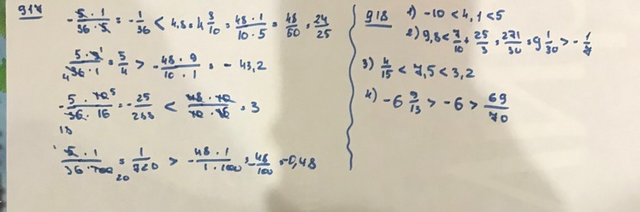 917
- 5·1/36·5 = - 1/36 < 4,8 = 4 8/10 = 48·1/10·5 = 48/50 = 24/25
5·9/36·1 = 5/4 > - 48·9/10·1 = - 43,2
- 5·10/36·16 = - 25/288 < = 3
5·1/36·100 = 1/720 > - 48·1/1·100 = - 48/100 = -0,48
918
1) -10 < 4,1 < 5
2) 9,8 < 7/10 + 25/3 = 271/30 = 9 1/30 > - 1/7
3) 4/15 < 7,5 < 3,2
4) -6 9/13 > -6 > 69/70